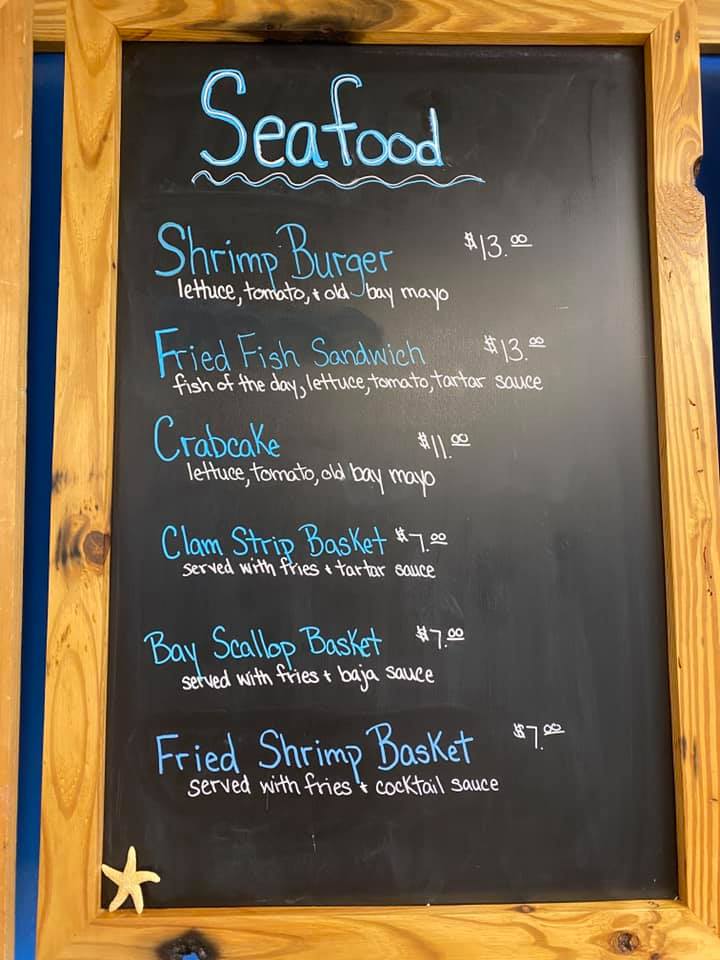 Seafood
Shrimp Burger $13.00
lettuce, tomato, + old bay mayo
Fried Fish Sandwich $13.00
fish of the day, lettuce, tomato, tartar sauce
Crabcake $11.00
lettuce, tomato, old bay mayo
Clam Strip Basket $7.00
served with fries + tartar sauce
Bay Scallop Basket $7.00
served with fries + baja sauce
Fried Shrimp Basket $7.00
served with fries + cocktail sauce